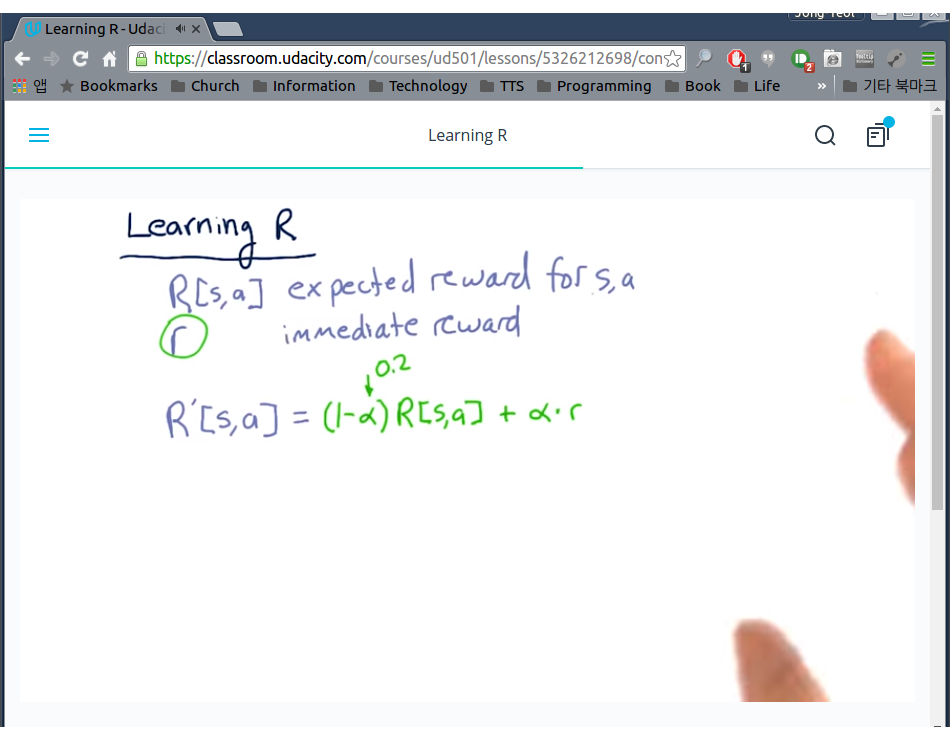 Jong Yeol
Learning R - Udaci
https://classroom.udacity.com/courses/ud501/lessons/5326212698/con
1
2
앱 Bookmarks Church Information Technology TTS Programming Book Life » 기타 북마크
Learning R
Learning R
R[s,a] expected reward for s,a
r immediate reward
0.2
R'[s,a] = (1-α) R[s,a] + α·r